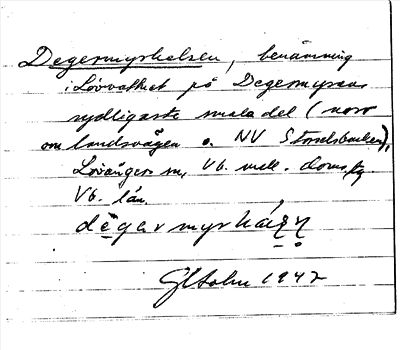 Degermyrhalsen, benämning
i Lövvattnet på Degermyrans
sydligaste smala del (norr
om landsvägen o. NV Storselsbacken),
Lövångers sn, Vb. mell. doms.
Vb. län.
1947